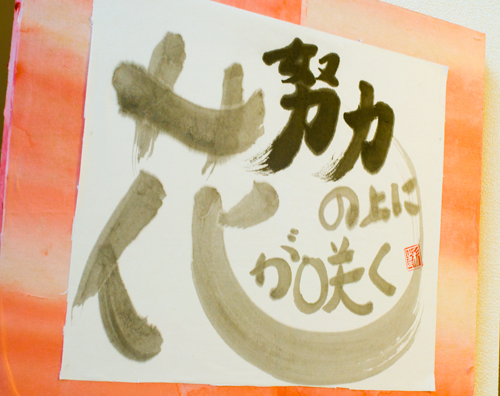 努力
の上に
花
が咲く